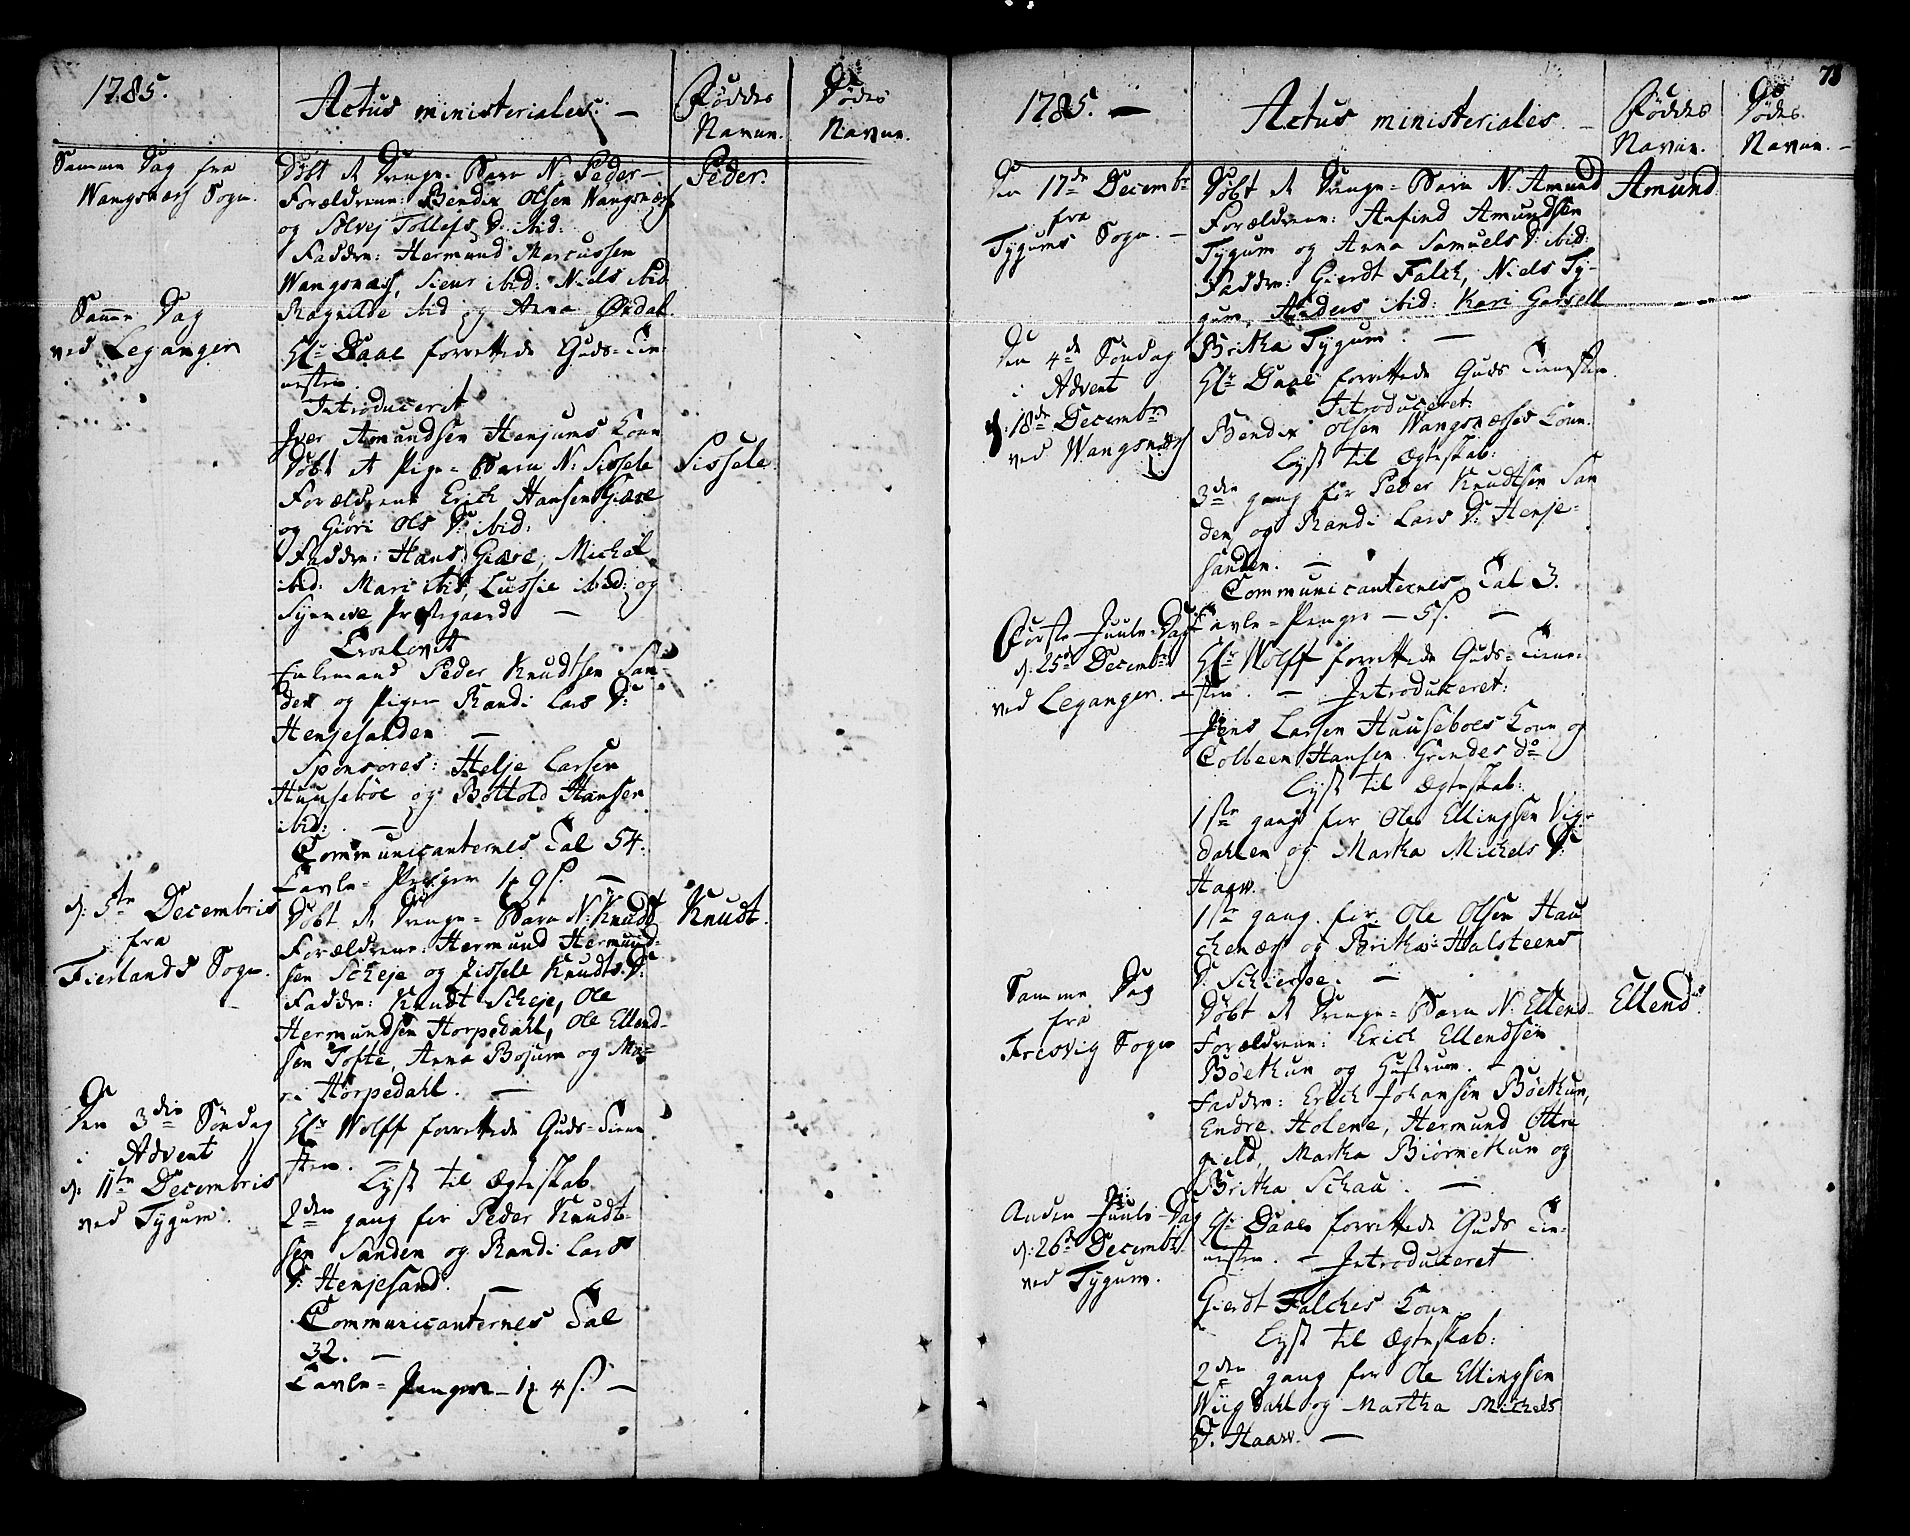 1785.
Actus ministeriales. —
Føddes
Navne.
Dødes
Navne.
Samme Dag fra
Wangsnæss Sogn.
Døbt et Drenge-Barn N: Peder
Forældrene: Bendix Olsen Wangsnæss
og Sølvej Tollefs D: ibid:
Faddre: Hermund Marcussen
Wangsnæss, Siur ibid: Niels ibid
Ragnilde ibid og Anna Ørdal.
Peder.
Samme Dag
ved Leganger
Hr Daae forrettede Guds-Tie-
nesten.
Introduceret
Iver Amundsen Henjums Kone
Døbt et Pige-Barn N: Sissele
Forældrene Erich Hansen Giære
og Giøri Ols D: ibid:
Faddre: Hans Giære, Michel
ibid: Mari ibid, Lussie ibid: og
Synneve Prestegaard —
Sissele
Trolovet
Enkemand Peder Knudtsen San-
den og Pigen Randi Lars D:
Henjesanden —
Sponsores: Helje Larsen
Huusebøe og Bottold Hansen
ibid: —
Communicanternes Tal 54.
Tavle-Penger 1 9 s. —
d: 5te Decembris
fra
Fierlands Sogn.
Døbt et Drenge-Barn N: Knudt
Forældrene: Hermund Hermund-
sen Scheje og Sissele Knudts D:
Faddre: Knudt Scheje, Ole
Hermundsen Horpedahl, Ole Ellend-
sen Tofte, Anna Bojum og Ma-
ri Horpedahl. —
Knudt.
Den 3die Søndag
i Advent
d: 11te Decembris
ved Tygum.
Hr Wolff forrettede Guds-Tiene-
sten.
Lyst til Ægteskab
2den gang for Peder Knudt-
sen Sanden og Randi Lars
D: Henjesand. —
Communicanternes Tal
32. —
Tavle-Penger — 1 4 s. —
78
1785. —
Actus ministeriales. —
Føddes
Navne.
Dødes
Navne. —
Den 17de Decembr
fra
Tygums Sogn. —
Døbt et Drenge-Barn N: Amund
Forældrene: Anfind Amundsen
Tygum og Anna Samuels D: ibid:
Faddre: Gierdt Falch, Niels Ty-
gum, Anders ibid: Kari
Britha Tygum. —
Amund
Den 4de Søndag
i Advent
d: 18de Decembr
ved Wangsnæss
Hr Daae forrettede Guds Tienesten.
Introduceret:
Bendix Olsen Wangsnæsses Kone.
Lyst til Ægteskab:
3den gang for Peder Knudtsen San
den og Randi Lars D: Henje-
sanden. —
Communicanternes Tal 3.
Tavle-Penger — 5 s. —
Første Juule-Dag
d: 25de Decembr
ved Leganger. —
Hr Wolff forrettede Guds-Tiene-
sten. — Introduceret:
Jens Larsen Huusebøes Kone og
Colbeen Hansen Grindes do
Lyst til Ægteskab:
1ste gang for Ole Ellingsen Vig-
dahlen og Martha Michels D:
Haaw.
1ste gang for Ole Olsen Hau
chenæss og Britha Halsteens
D: Schierpe. —
Samme Dag
fra
Fresvig Sogn
Døbt et Drenge-Barn N: Ellend
Forældrene: Erich Ellendsen
Bøetun og Hustrue. —
Faddre: Erich Johansen Bøetun,
Endre Holene, Hermund Ottre
gield, Martha Biørnetun og
Britha Schau. —
Ellend
Anden Juule-Dag
d: 26de Decembr
ved Tygum.
Hr Daae forrettede Guds Tie-
nesten. — Introduceret
Gierdt Falches Kone
Lyst til Ægteskab:
2den gang for Ole Ellingsen
Wiigdahl og Martha Michels
D. Haaw. —